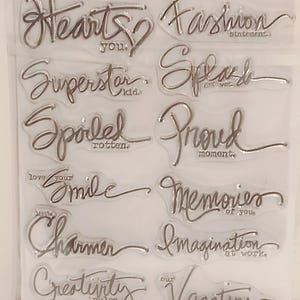 Hearts
you.
Fashion
statement.
Superstar
kid.
Splash
Spoiled
rotten.
Proud
moment.
love your
Smile
Memories
of you.
Charmer
Imagination
at work.
Creativity
our
Vacation